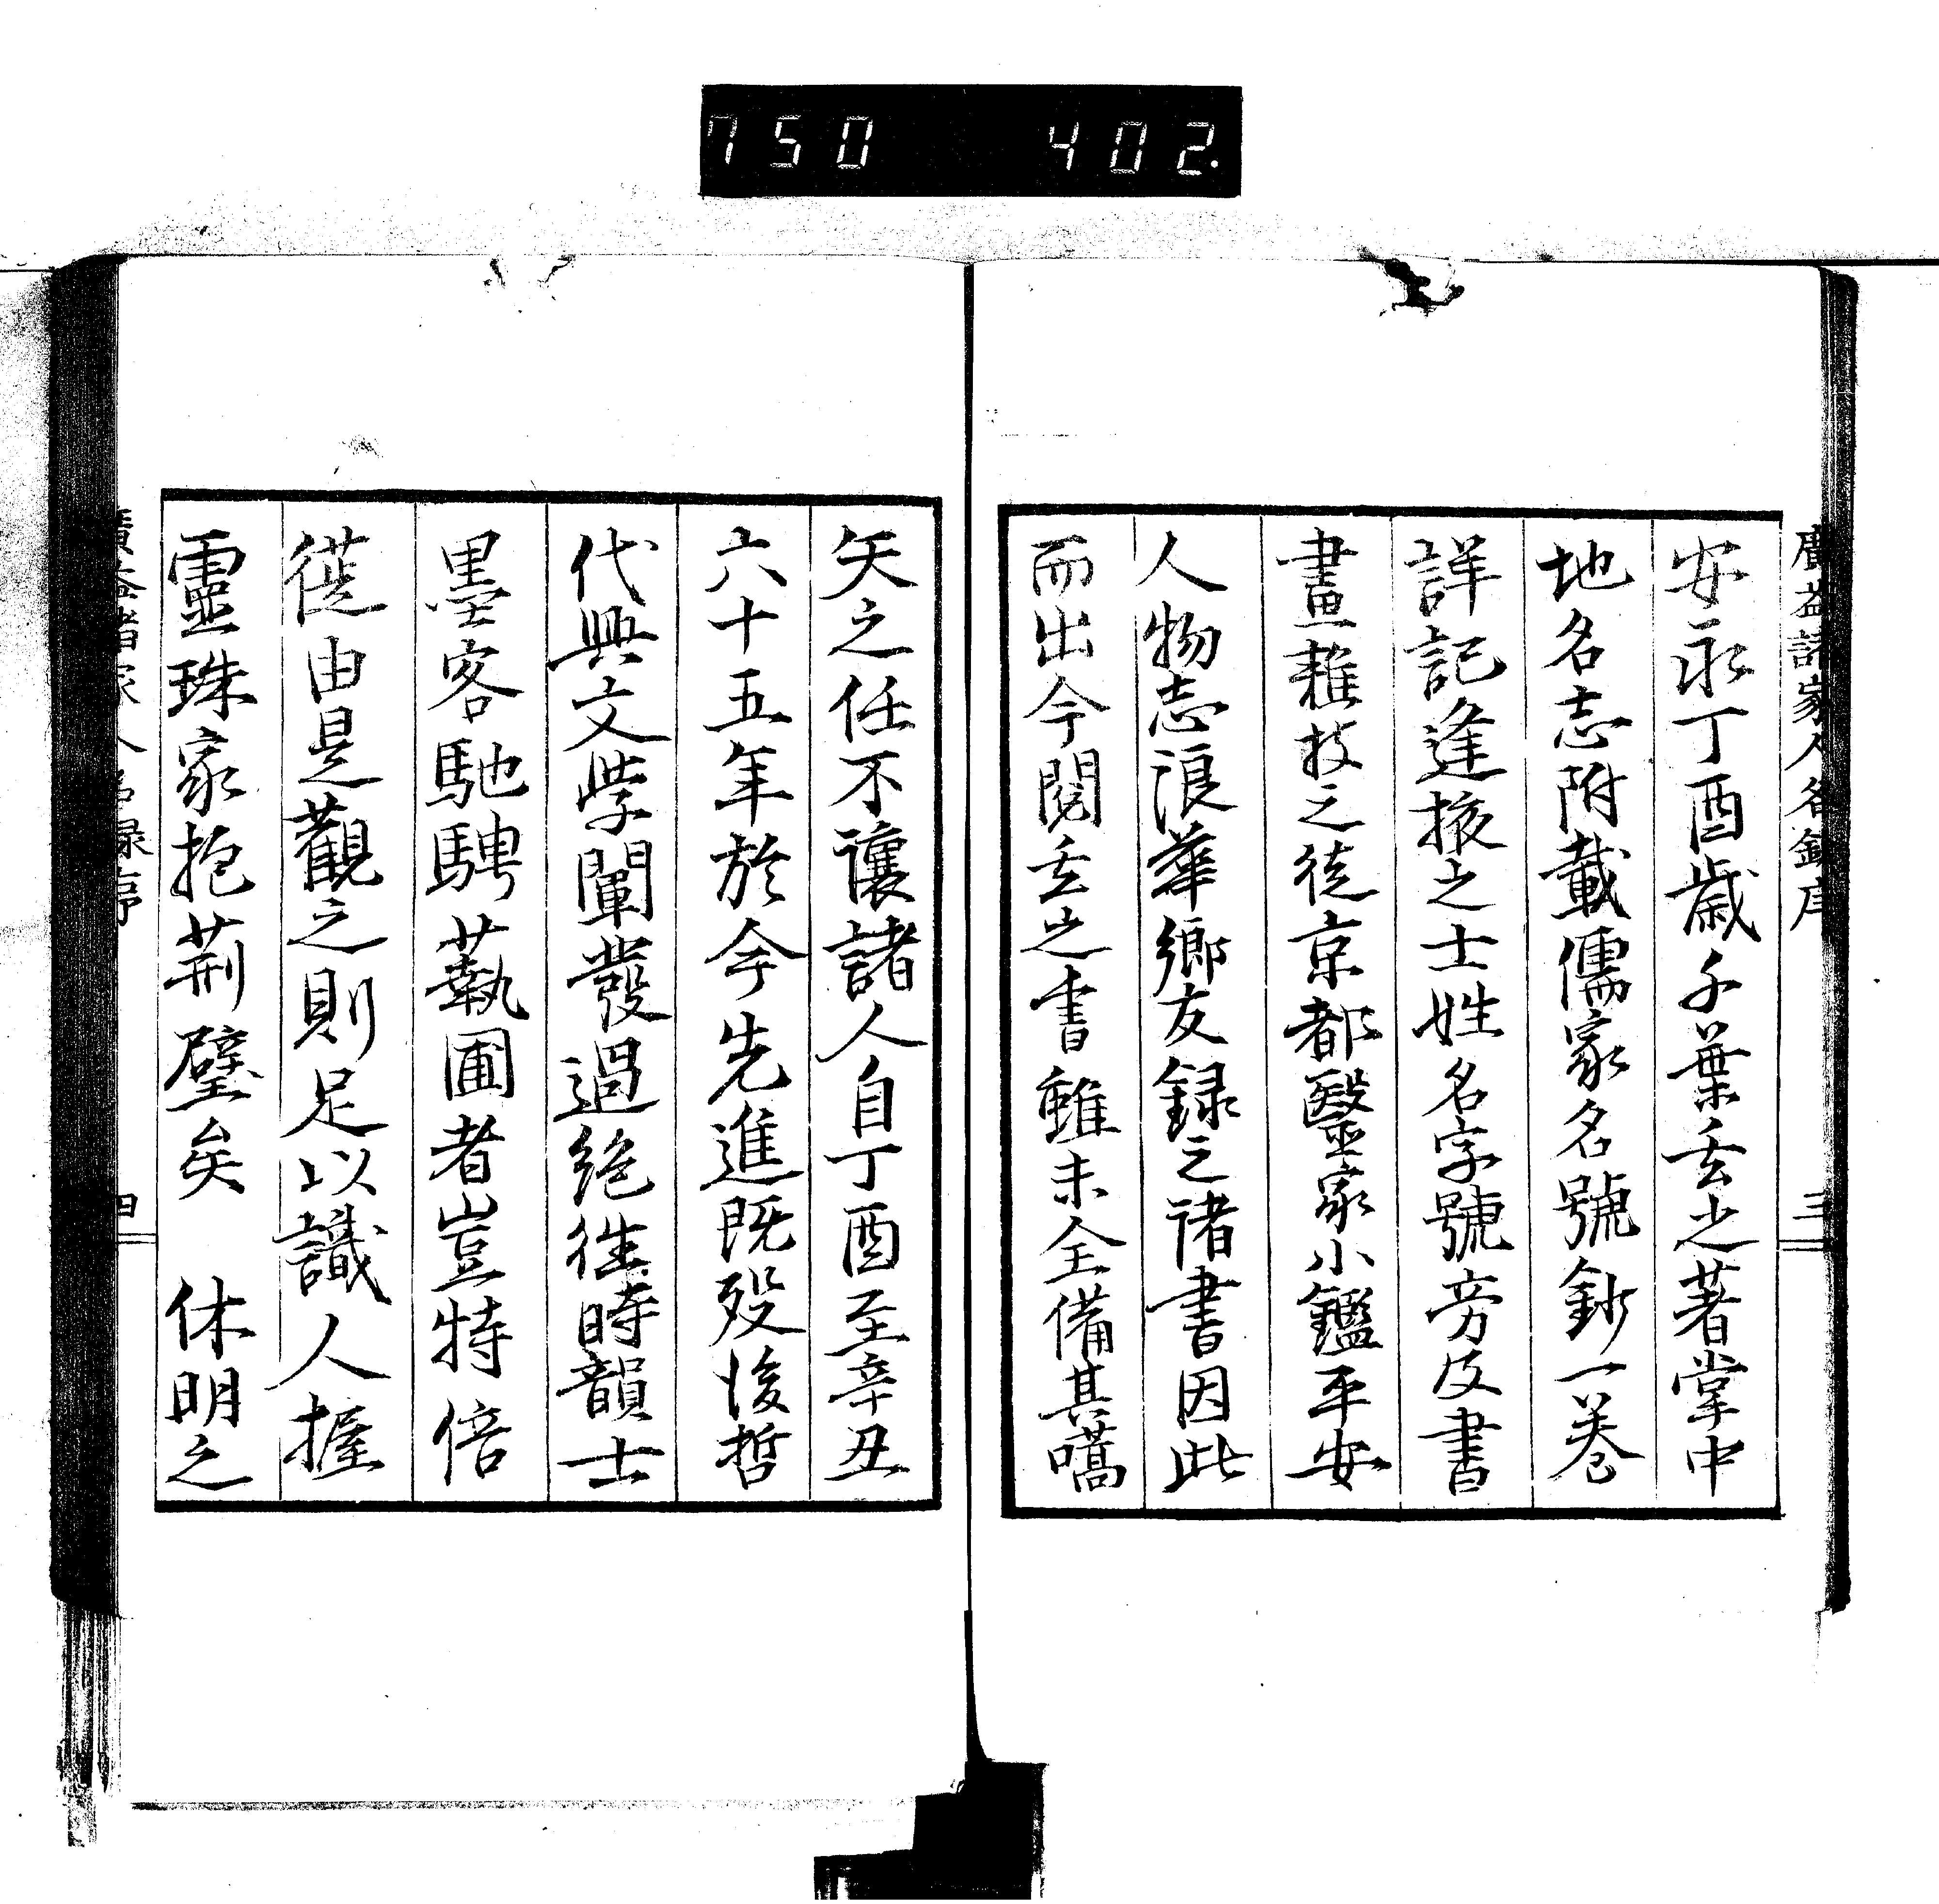 750 402.
廣益諸家人名録序
三
安永丁酉歳千葉玄之著掌中
地名志附載儒家名號鈔一巻
詳記逢掖之士姓名字號旁及書
畫雜技之徒京都醫家小鑑平安
人物志浪華郷友録之諸書因此
而出今閲玄之書雖未全備其嚆
矢之任不讓諸人自丁酉至辛丑
六十五年於今先進既歿後哲
代興文學闡發過絶徃時韻士
墨客馳騁藝圃者豈特倍
蓰由是觀之則足以識人握
靈珠家抱荊璧矣 休明之
廣益諸家人名録序
四